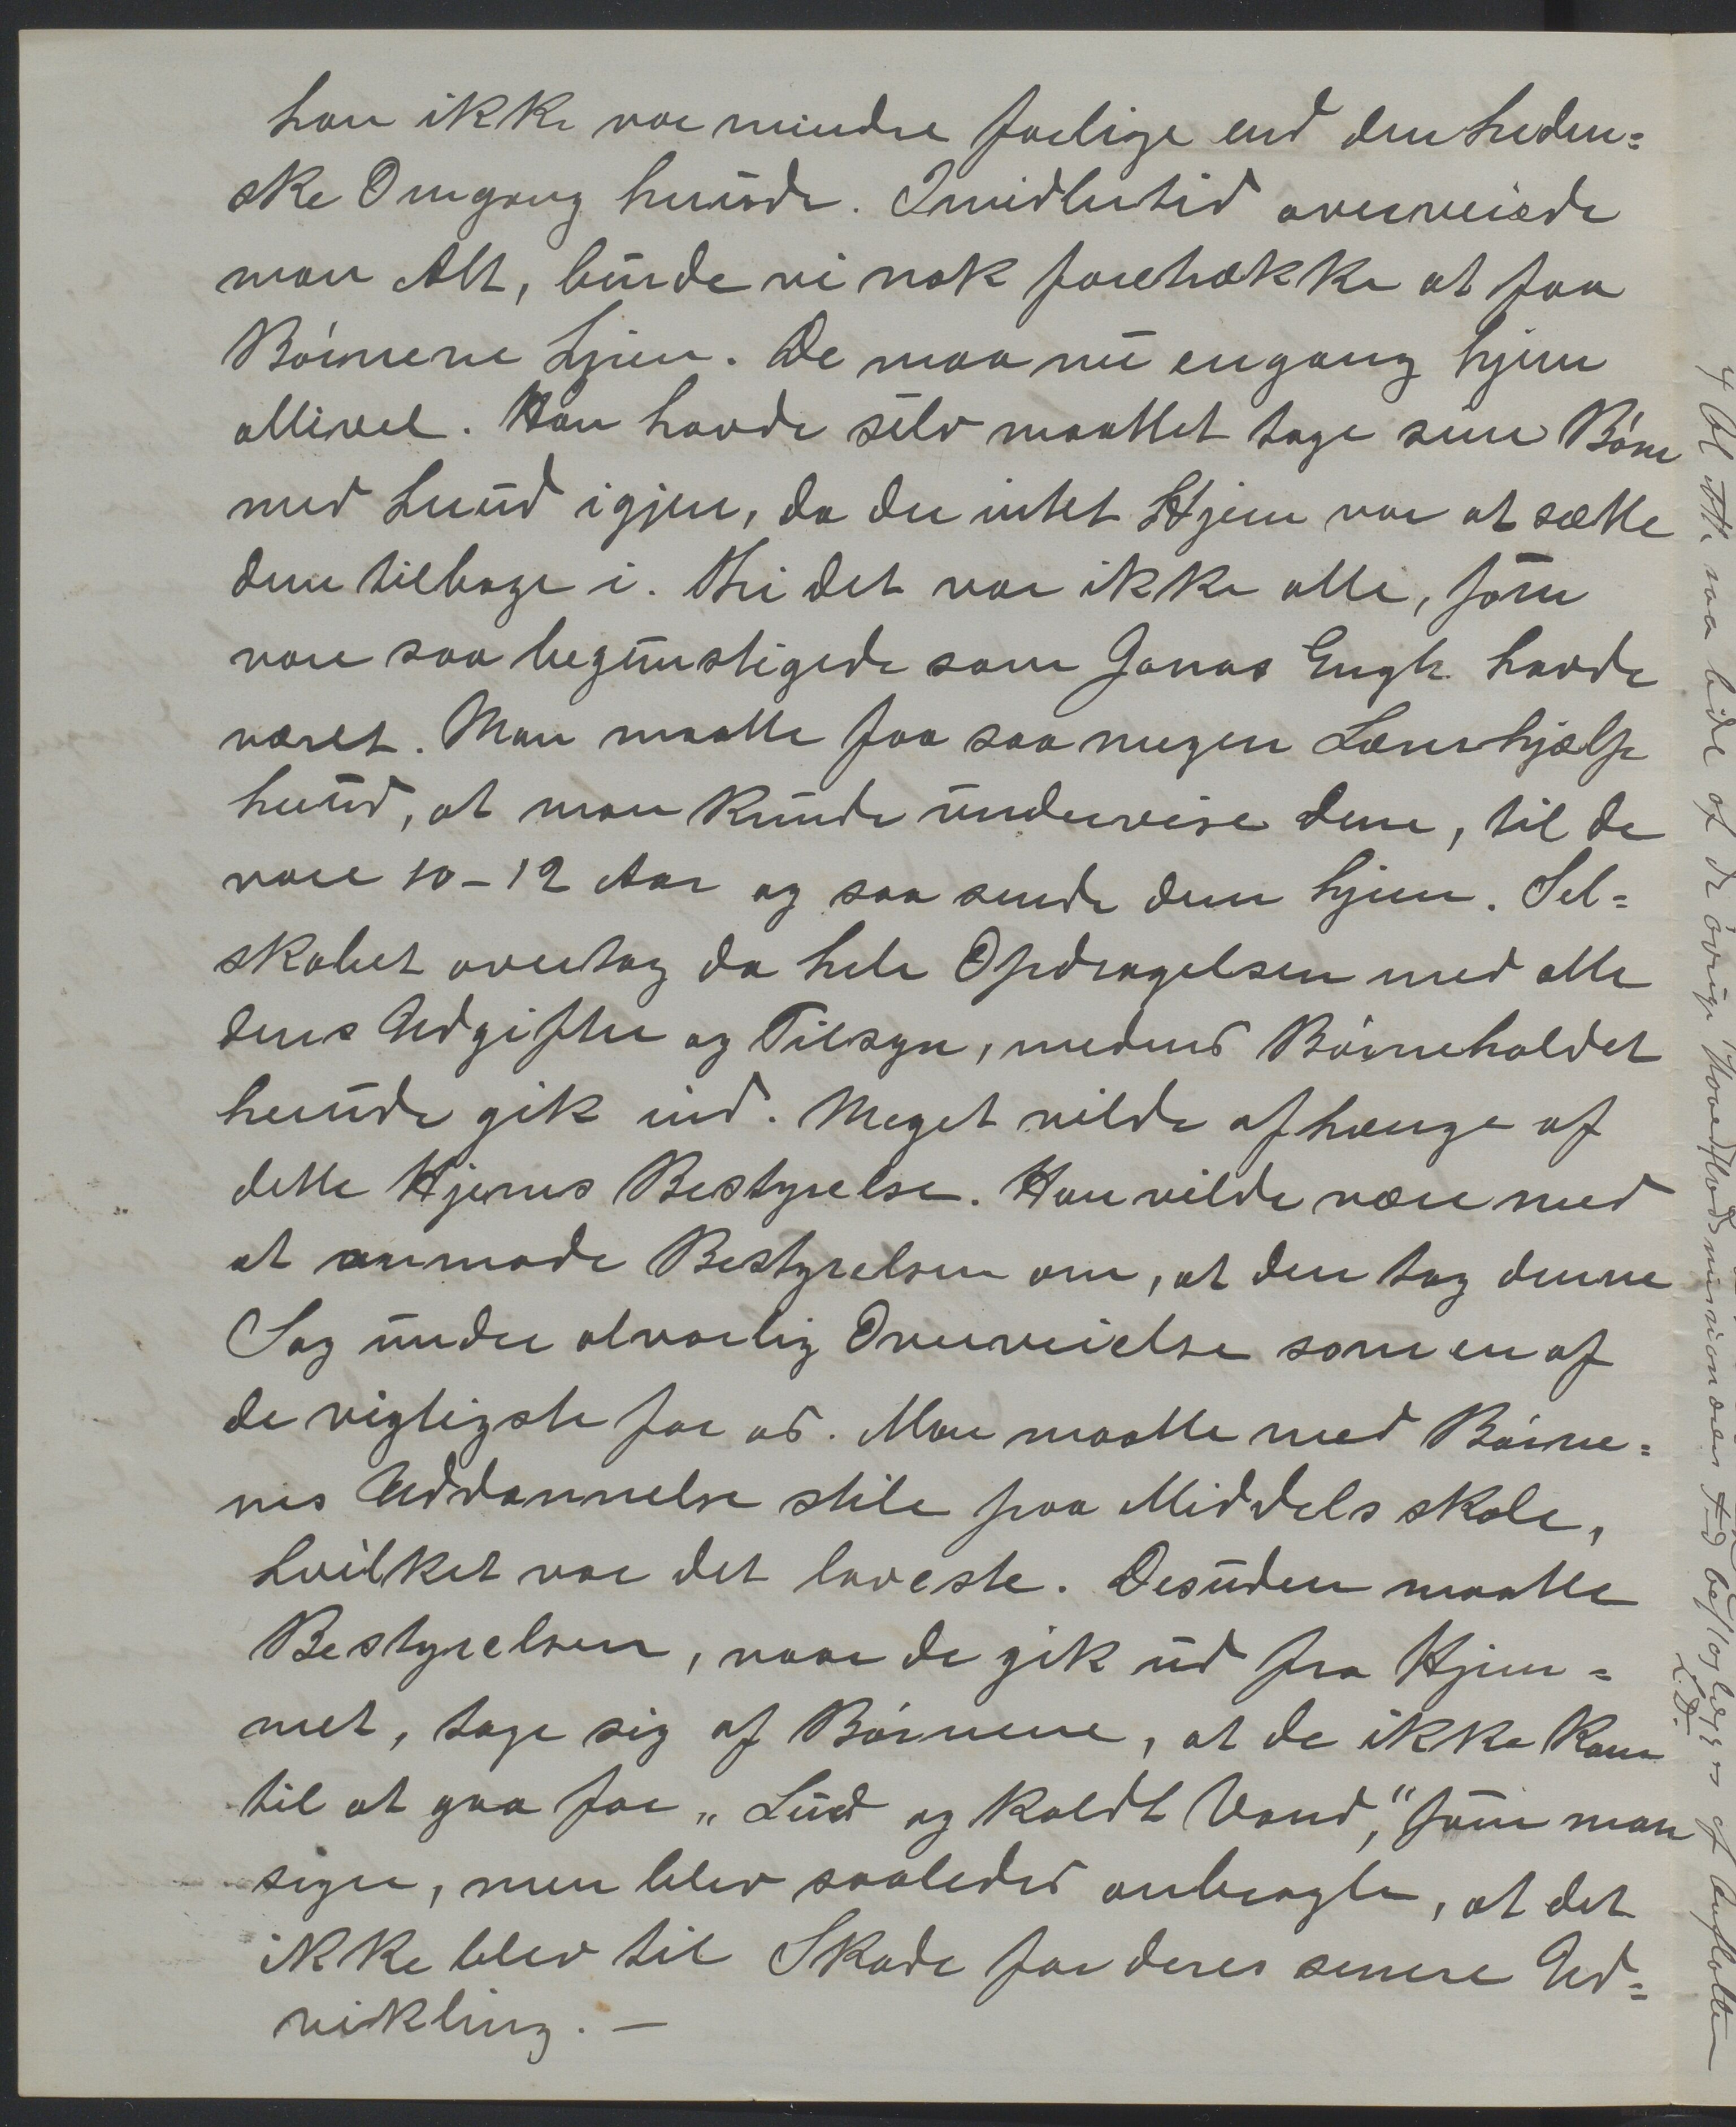 han ikke var mindre farlige end den heden=
ske Omgang herude. Imidlertid overveiede
man Alt, burde vi nok foretrække at faa
Börnene hjem. De maa nu engang hjem
allivel. Han havde selv maattet tage sine Börn
med herud igjen, da der intet Hjem var at sætte
dem tilbage i. Thi det var ikke alle, som
vare saa begunstigede som Jonas Engh havde
været. Man maatte faa saa megen Lærerhjælp
herud, at man kunde undervise dem, til de
vare 10-12 Aar og saa sende dem hjem. Sel=
skabet overtog da hele Opdragelsen med alle
dens Udgifter og Tilsyn, medens Börneholdet
herude gik ind. Meget vilde afhænge af
dette Hjems Bestyrelse. Han vilde være med
at anmode Bestyrelsen om, at den tog denne
Sag under alvorlig Overveielse som en af
de vigtigste for os. Man maatte med Börne=
nes Uddannelse stile paa Middelsskole,
hvilket var det laveste. Desuden maatte
Bestyrelsen, naar de gik ud fra Hjem=
met, tage sig af Börnene, at de ikke kom
til at gaa for „Lud og koldt Vand," som man
siger, men blev saaledes anbragte, at det
ikke blev til Skade for deres senere Ud=
vikling. —
af de övrige
L.D.